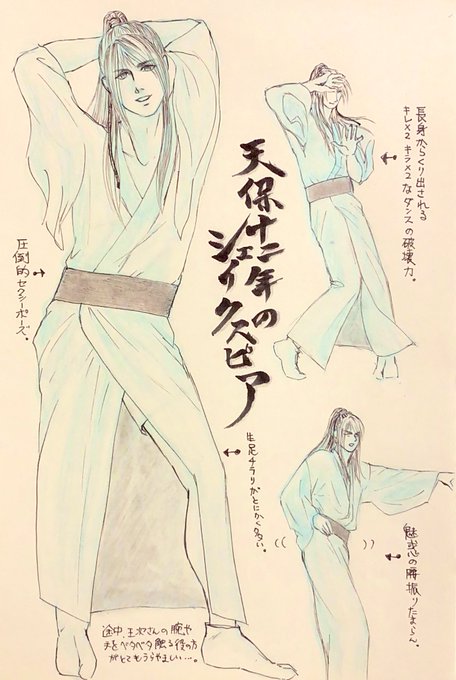 長身からくり出される
キレ×2 キラ×2 なダンスの破壊力。
天保十二年の
シェイクスピア
圧倒的セクシーポーズ。
生足チラリがとにかく多い。
魅惑の腰振りたまらん。
途中、王次さんの腕や
夫をベタベタ触る役の方
がとてもうらやましい…。